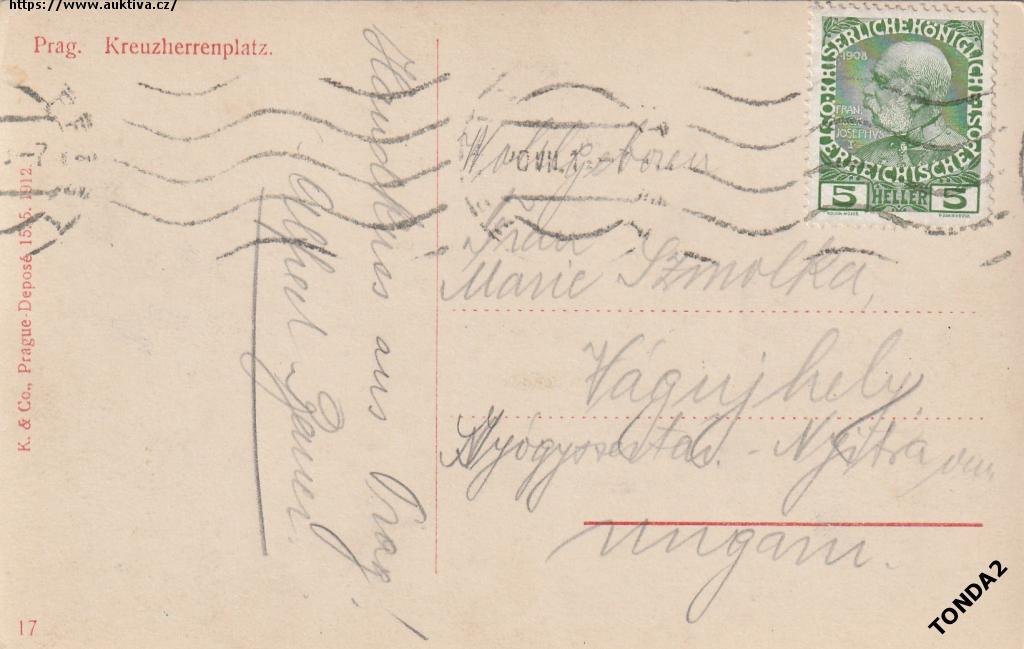 https://www.auktiva.cz/
Prag. Kreuzherrenplatz.
K. & Co., Prague-Deposé 15./5. 1912.
17
Handkuss aus Prag!
KAISERLICHEKÖNIGLICHE ÖSTERREICHISCHE POST
1908
FRAN
JOSEPHVS
5 HELLER 5
Wohlgeboren
Frau
Marie Szmolka,
Vágujhely,
Nyitra
Ungarn.
TONDA2